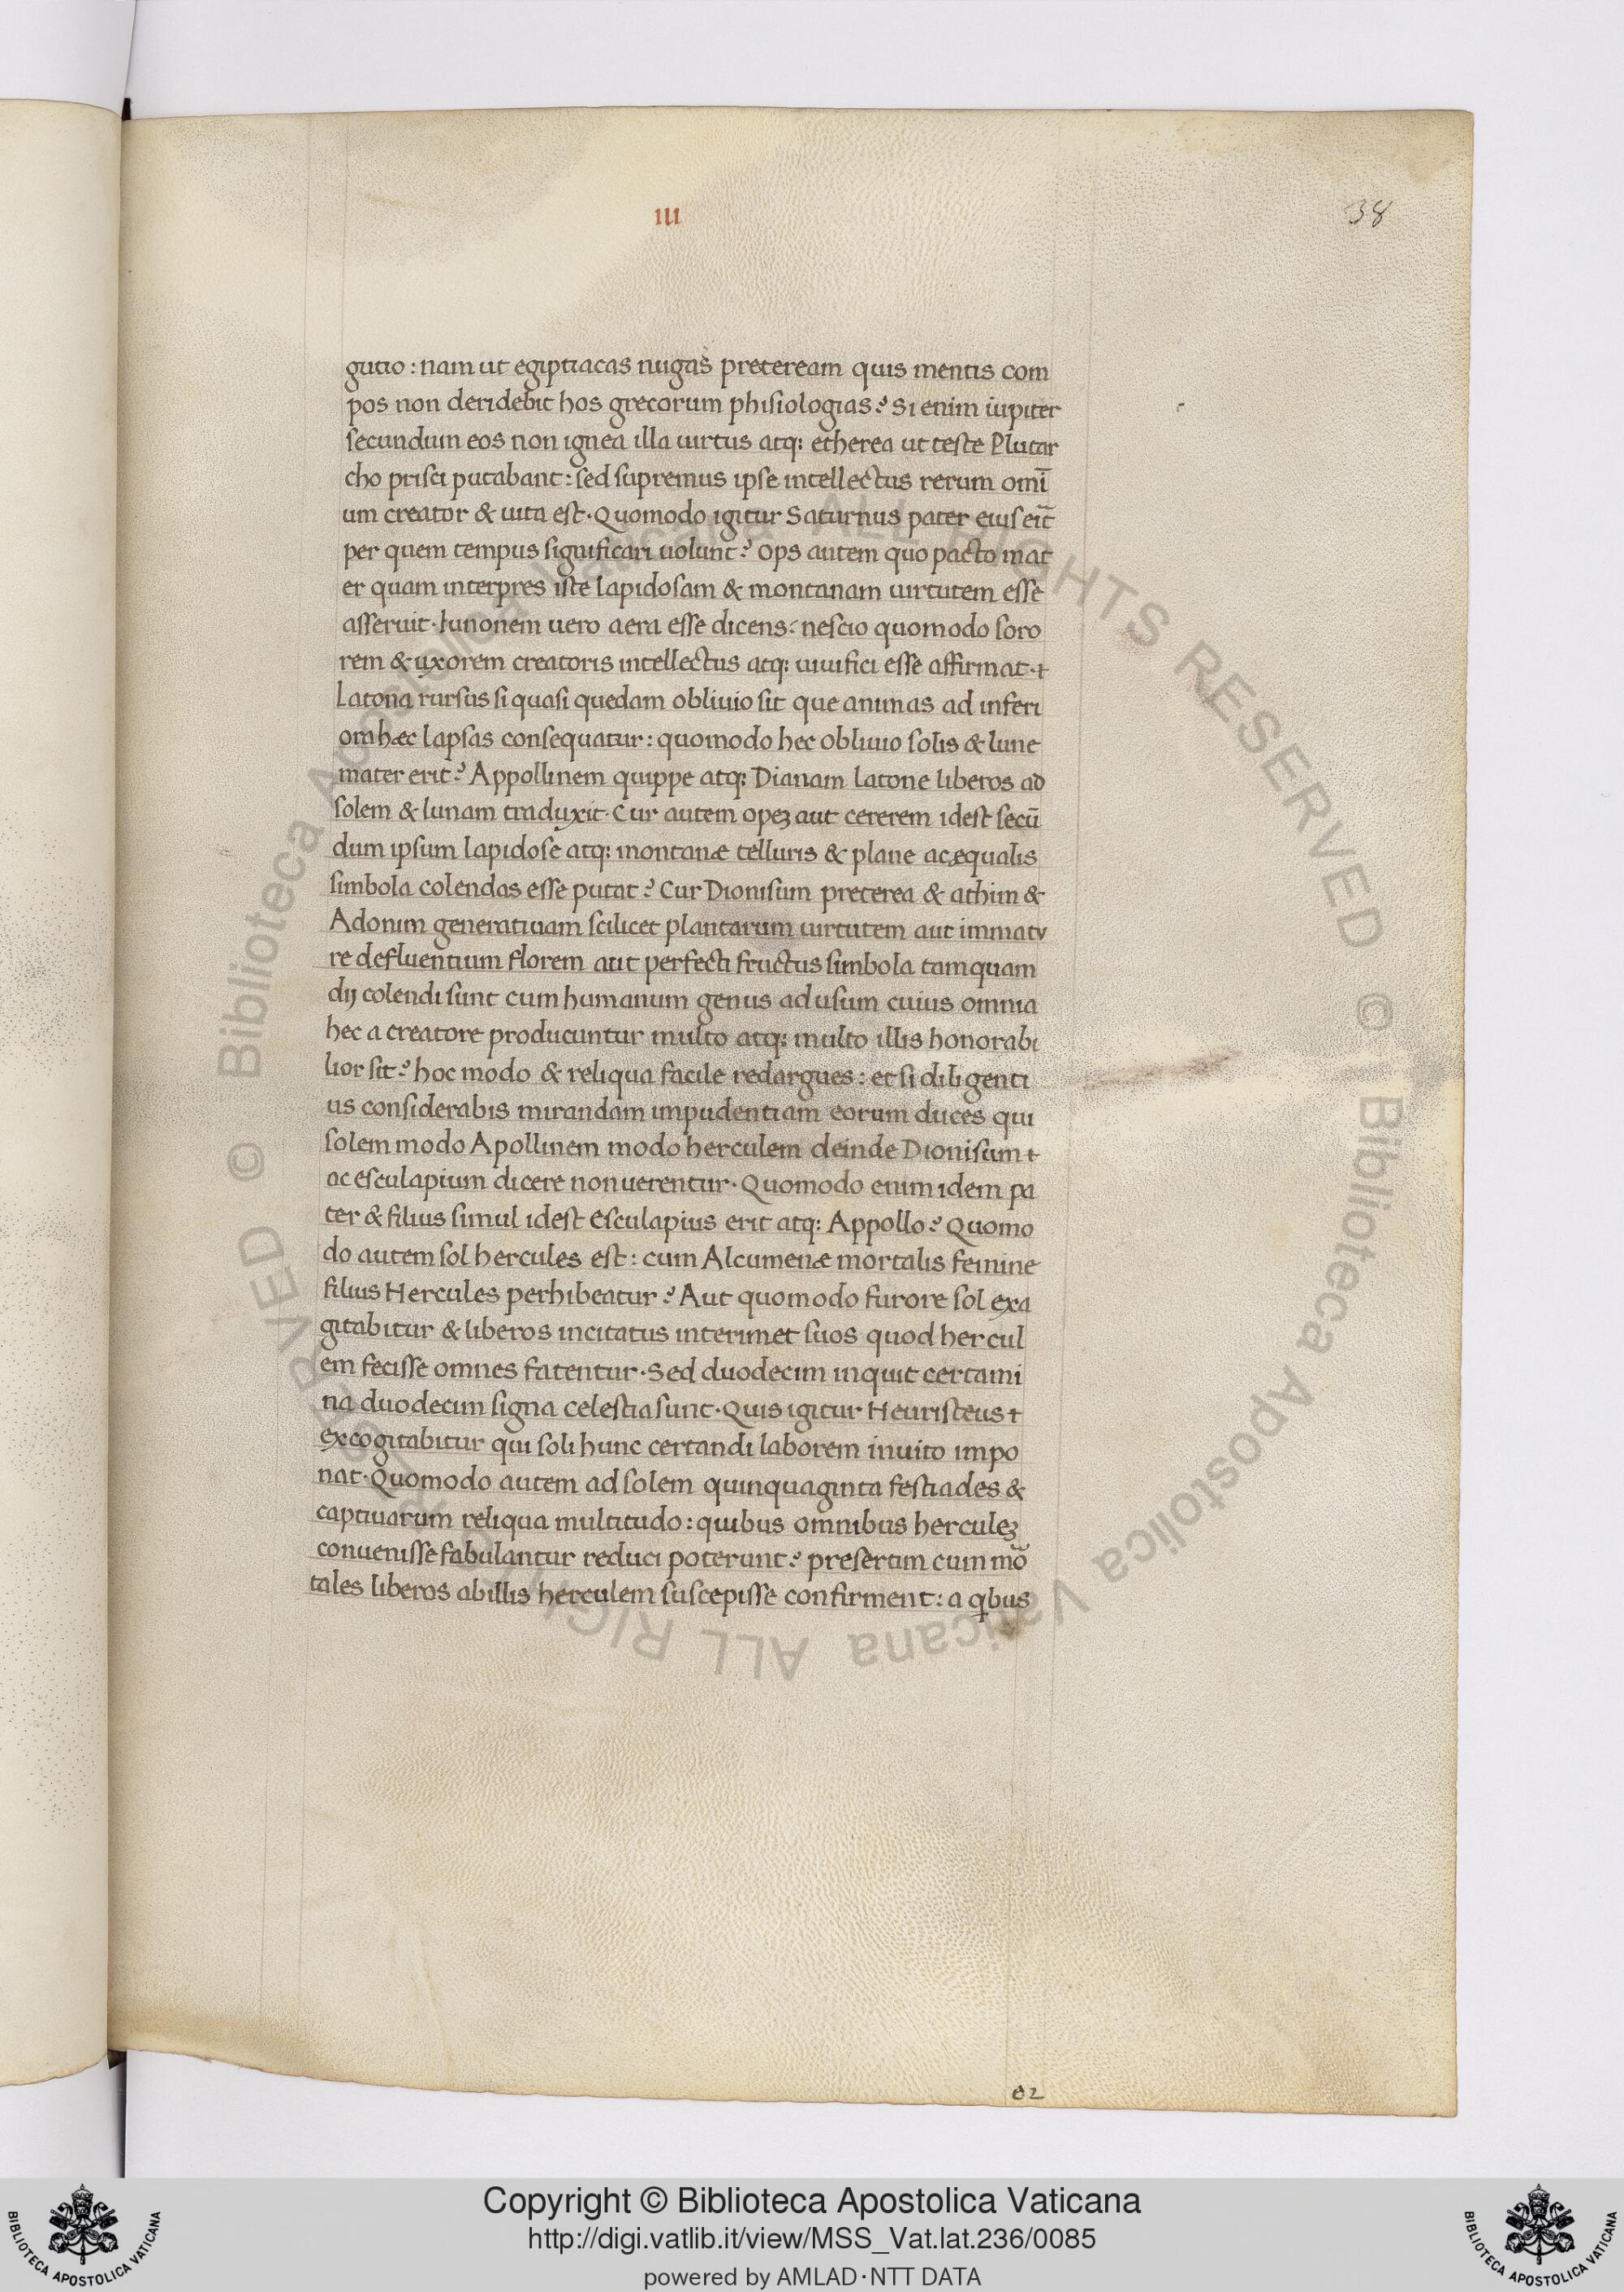 III
38
gutio: nam ut egiptiacas nugas preteream quis mentis com
pos non deridebit hos grecorum phisiologias? Si enim iupiter
secundum eos non ignea illa uirtus atq; etherea ut teste Plutar
cho prisci putabant: sed supremus ipse intellectus rerum omī
um creator & uita est. Quomodo igitur Saturnus pater eius eīt
per quem tempus significari uolunt? Ops autem quo pacto mat
er quam interpres iste lapidosam & montanam uirtutem esse
asseruit. Iunonem uero aera esse dicens: nescio quomodo soro
rem & uxorem creatoris intellectus atq; uiuifici esse affirmat.
Latona rursus si quasi quedam obliuio sit que animas ad inferi
ora hæc lapsas consequatur: quomodo hec obliuio solis & lune
mater erit? Appollinem quippe atq; Dianam latone liberos ad
solem & lunam traduxit. Cur autem opeꝫ aut cererem idest secū
dum ipsum lapidose atq; montanæ telluris & plane ac æqualis
simbola colendas esse putat? Cur Dionisum preterea & athim &
Adonim generatiuam scilicet plantarum uirtutem aut immatu
re defluentium florem aut perfecti fructus simbola tamquam
dij colendi sunt cum humanum genus ad usum cuius omnia
hec a creatore producuntur multo atq; multo illis honorabi
lior sit? hoc modo & reliqua facile redargues: et si diligenti
us considerabis mirandam impudentiam eorum duces qui
solem modo Apollinem modo herculem deinde Dionisum
ac esculapium dicere non uerentur. Quomodo enim idem pa
ter & filius simul idest esculapius erit atq; Appollo? Quomo
do autem sol hercules est: cum Alcumenæ mortalis femine
filius Hercules perhibeatur? Aut quomodo furore sol exa
gitabitur & liberos incitatus interimet suos quod hercul
em fecisse omnes fatentur. Sed duodecim inquit certami
na duodecim signa celestia sunt. Quis igitur Heuristeus
excogitabitur qui soli hunc certandi laborem inuito impo
nat. Quomodo autem ad solem quinquaginta festiades &
captiuarum reliqua multitudo: quibus omnibus herculeꝫ
conuenisse fabulantur reduci poterunt? presertim cum mo
tales liberos ab illis herculem suscepisse confirment: a qbus
e2
© Biblioteca Apostolica Vaticana ALL RIGHTS RESERVED © Biblioteca Apostolica Vaticana ALL RIGHTS RESERVED
Copyright © Biblioteca Apostolica Vaticana
http://digi.vatlib.it/view/MSS_Vat.lat.236/0085
powered by AMLAD·NTT DATA
BIBLIOTECA APOSTOLICA VATICANA
BIBLIOTECA APOSTOLICA VATICANA